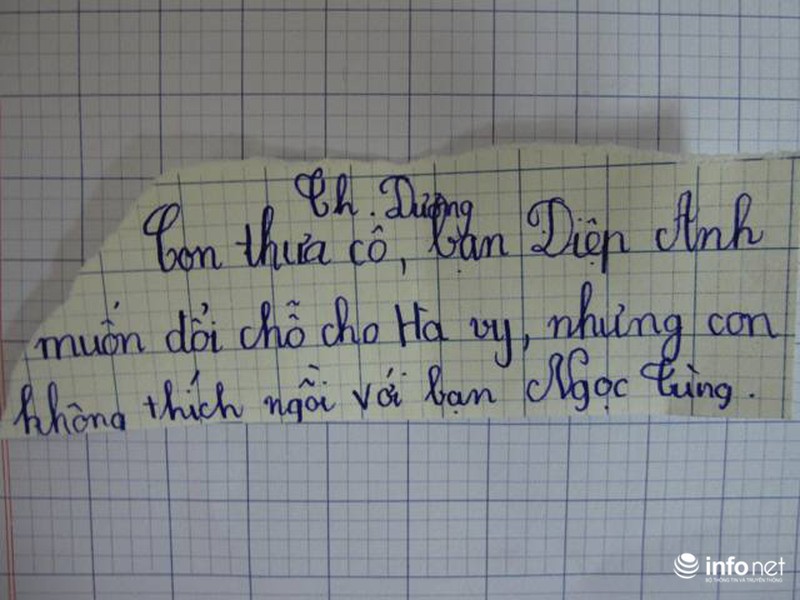 Th. Dương
Con thưa cô, bạn Diệp Anh
muốn đổi chỗ cho Hà vy, nhưng con
không thích ngồi với bạn Ngọc Tùng.
infonet
BỘ THÔNG TIN VÀ TRUYỀN THÔNG